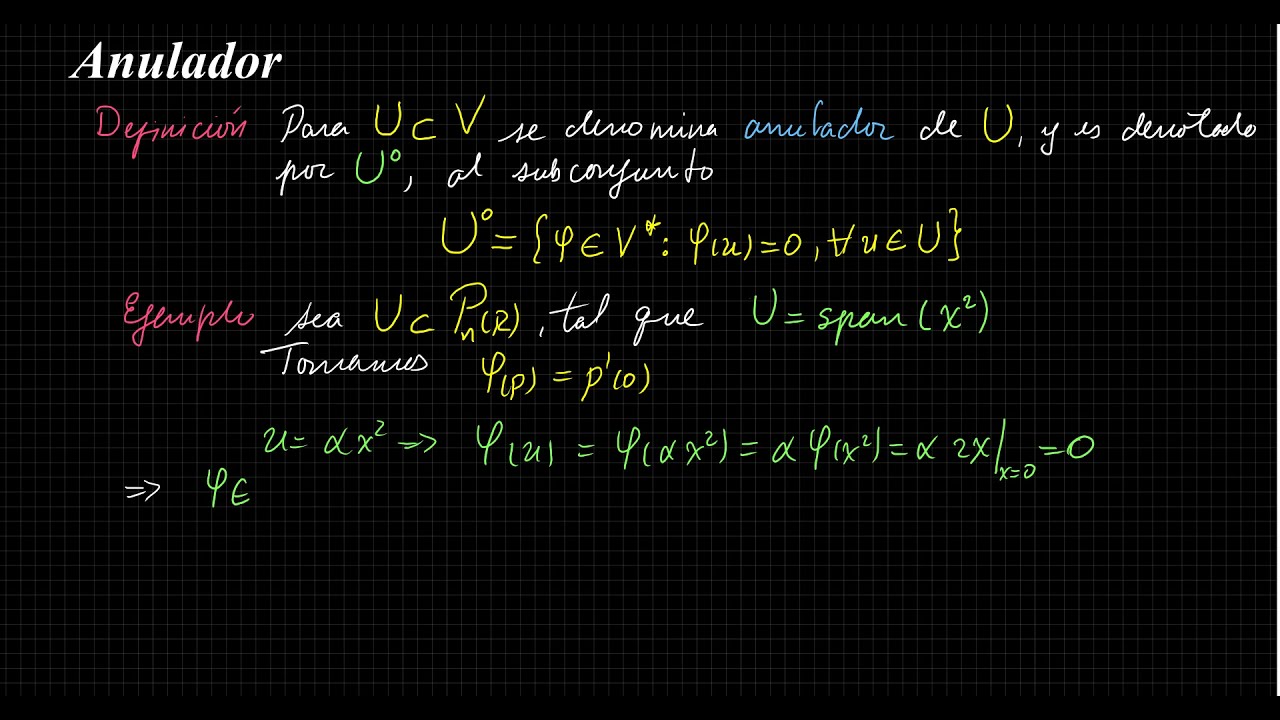 Anulador
Definición Para U ⊂ V se denomina anulador de U, y es denotado
por U⁰, al subconjunto
U⁰ = {φ ∈ V* : φ(u) = 0, ∀ u ∈ U}
Ejemplo sea U ⊂ Pₙ(R), tal que U = span(x²)
Tomamos φ(p) = p'(0)
u = αx² => φ(u) = φ(αx²) = αφ(x²) = α 2x|ₓ₌₀ = 0
=> φ ∈